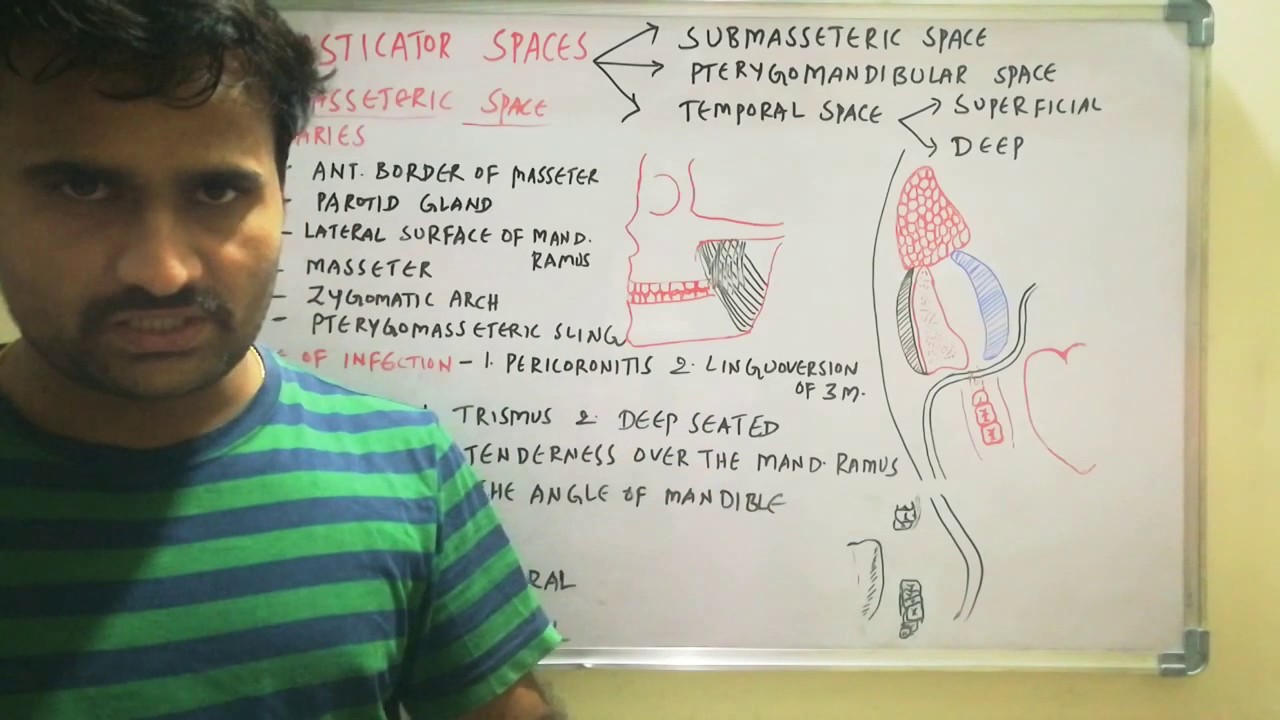 STICATOR SPACES
SUBMASSETERIC SPACE
PTERYGOMANDIBULAR SPACE
TEMPORAL SPACE
SUPERFICIAL
DEEP
ASSETERIC SPACE
ARIES
- ANT. BORDER OF MASSETER
- PAROTID GLAND
- LATERAL SURFACE OF MAND.
RAMUS
- MASSETER
- ZYGOMATIC ARCH
- PTERYGOMASSETERIC SLING
OF INFECTION - 1. PERICORONITIS 2. LINGUOVERSION
OF 3 M.
TRISMUS 2. DEEP SEATED
TENDERNESS OVER THE MAND. RAMUS
HE ANGLE OF MANDIBLE
RAL